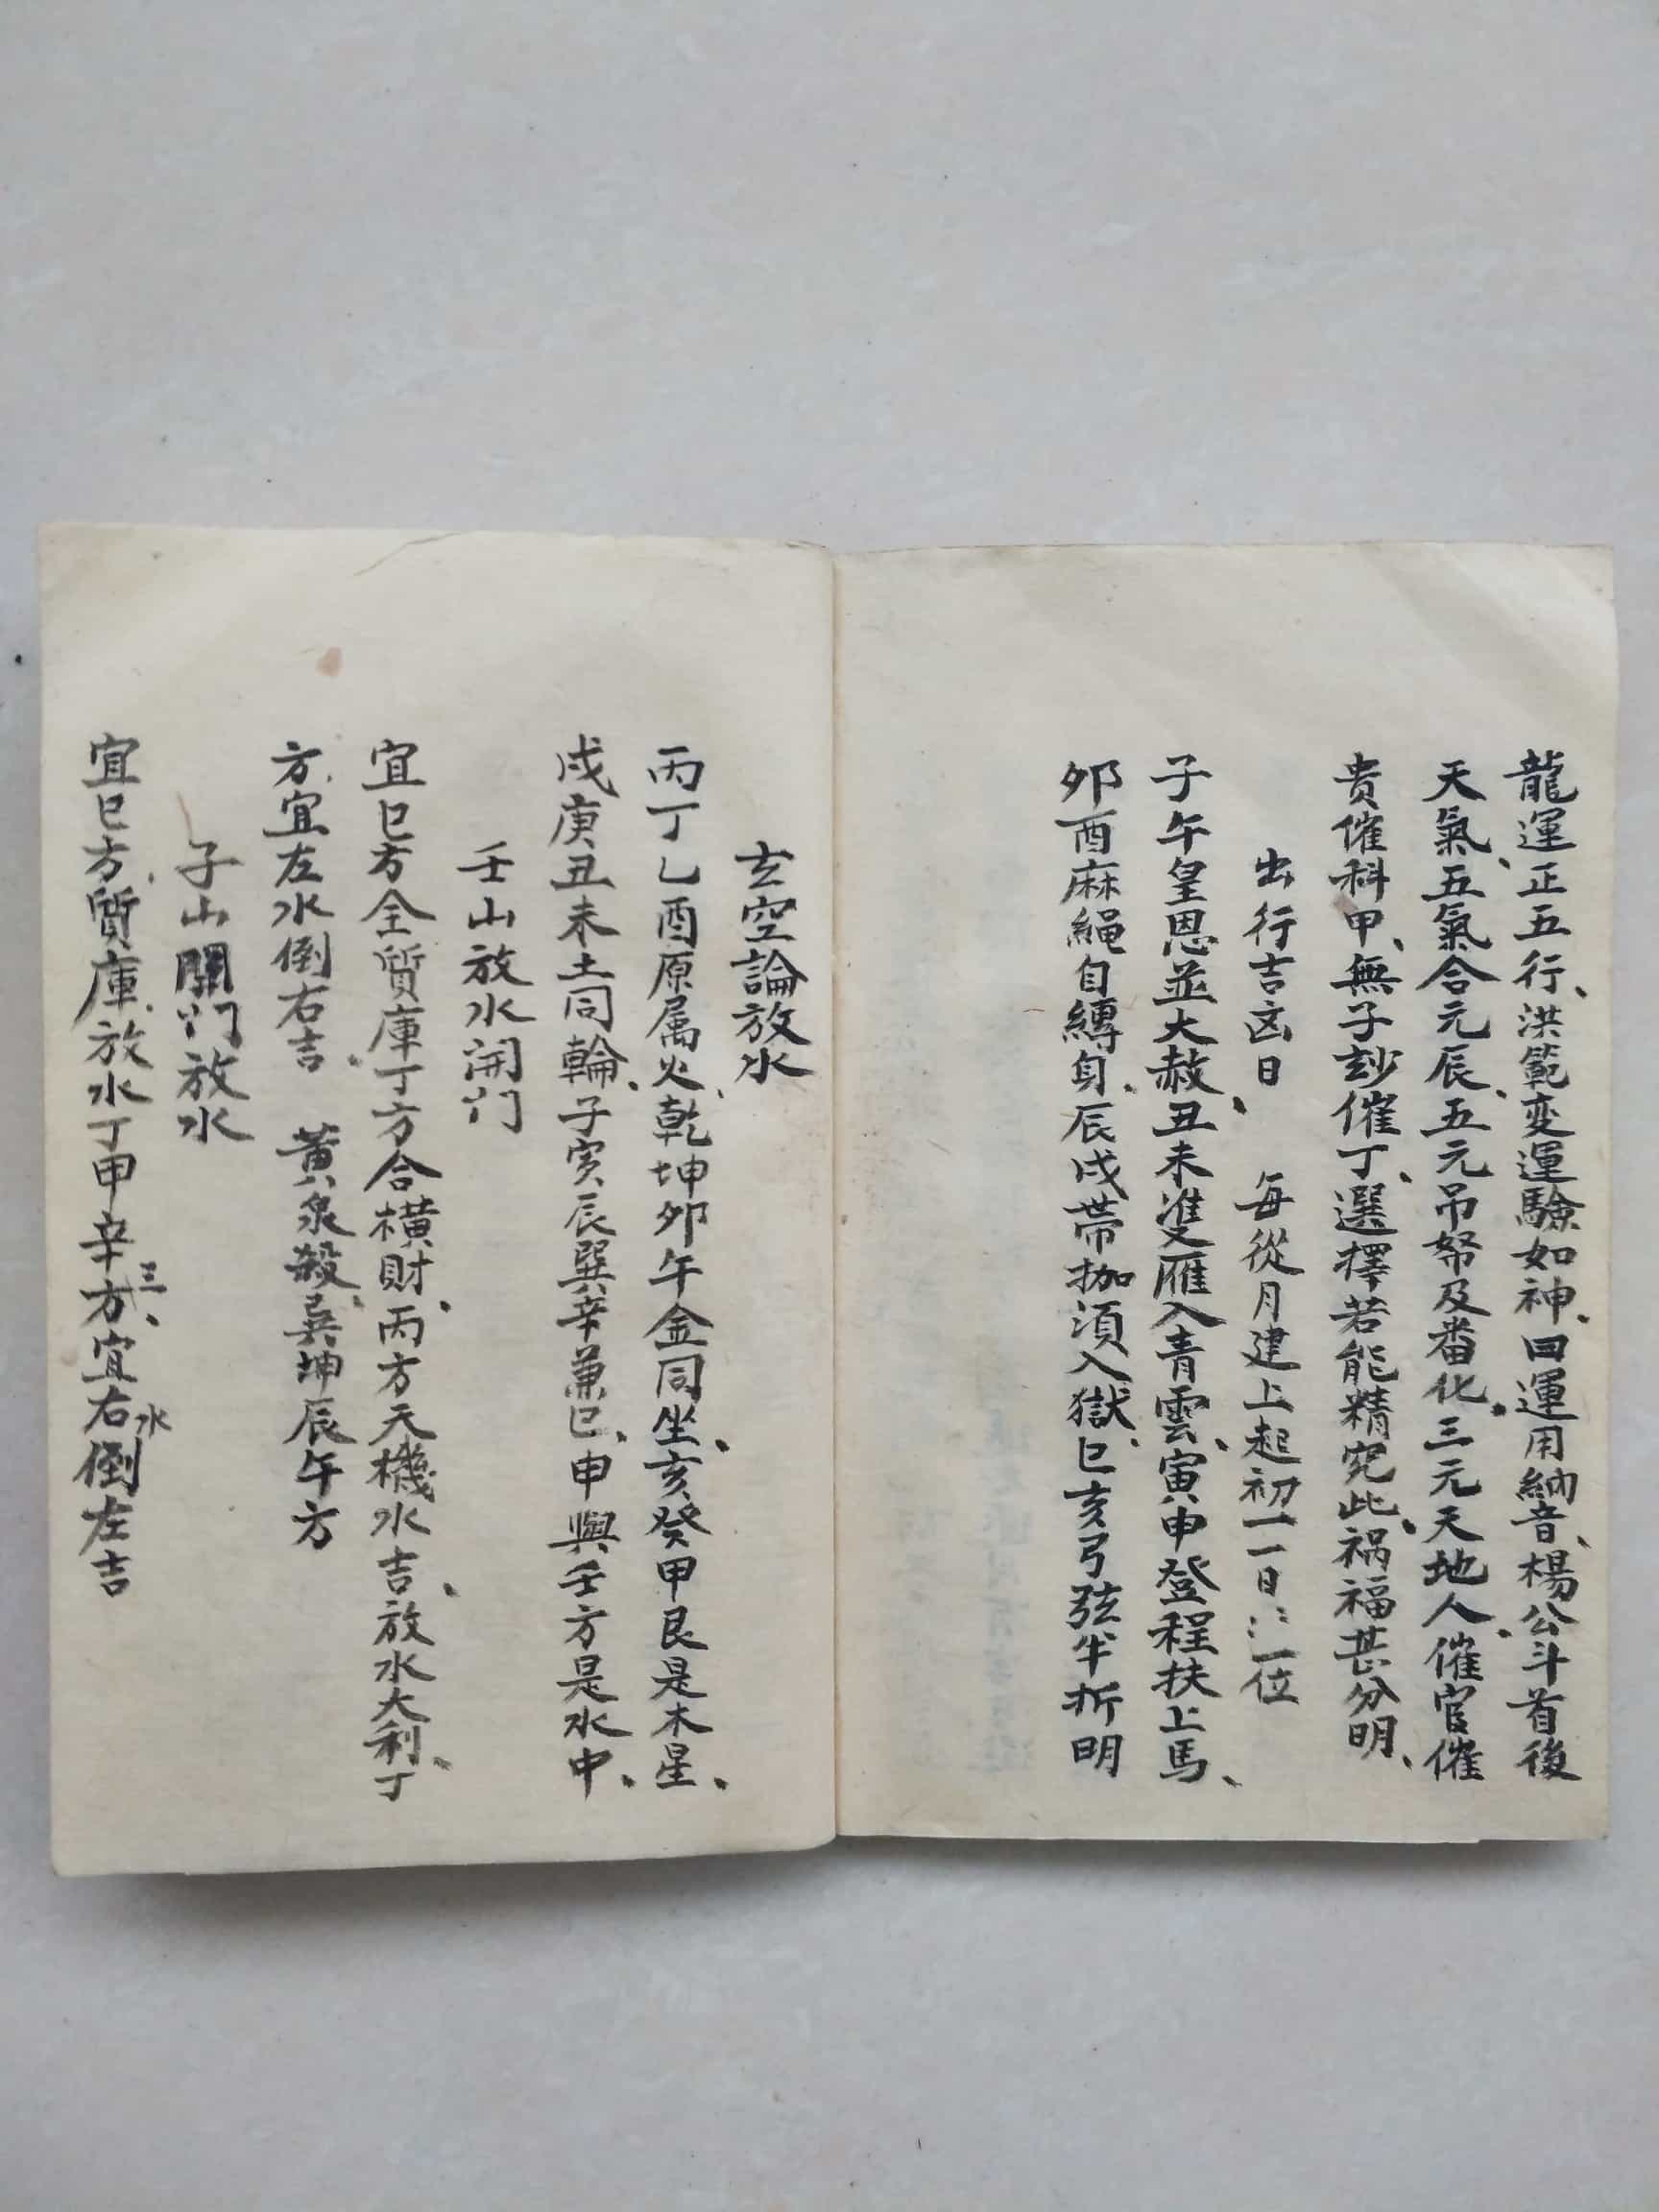 龍運正五行、洪範变運驗如神、回運用納音、楊公斗首後
天氣、五氣合元辰、五元吊帑及番化、三元天地人、催官催
贵催科甲、無子玅催丁、選擇若能精究此、禍福甚分明、
出行吉凶日 每從月建上起初一一日〻一位
子午皇恩並大赦、丑未準雙雁入青雲、寅申登程扶上馬、
夘酉麻繩自縛身、辰戌帶枷須入獄、巳亥弓弦半折明
玄空論放水
丙丁乙酉原属火、乾坤夘午金同坐、亥癸甲艮是木星、
戌庚丑未土同輪、子寅辰巽辛兼巳、申與壬方是水中、
壬山放水開门
宜巳方全質庫丁方合横財、丙方天機水吉、放水大利、丁
方、宜左水倒右吉、 黄泉殺、巽坤辰午方
子山開门放水
宜巳方、質庫、放水丁甲辛三方、宜右水倒左吉